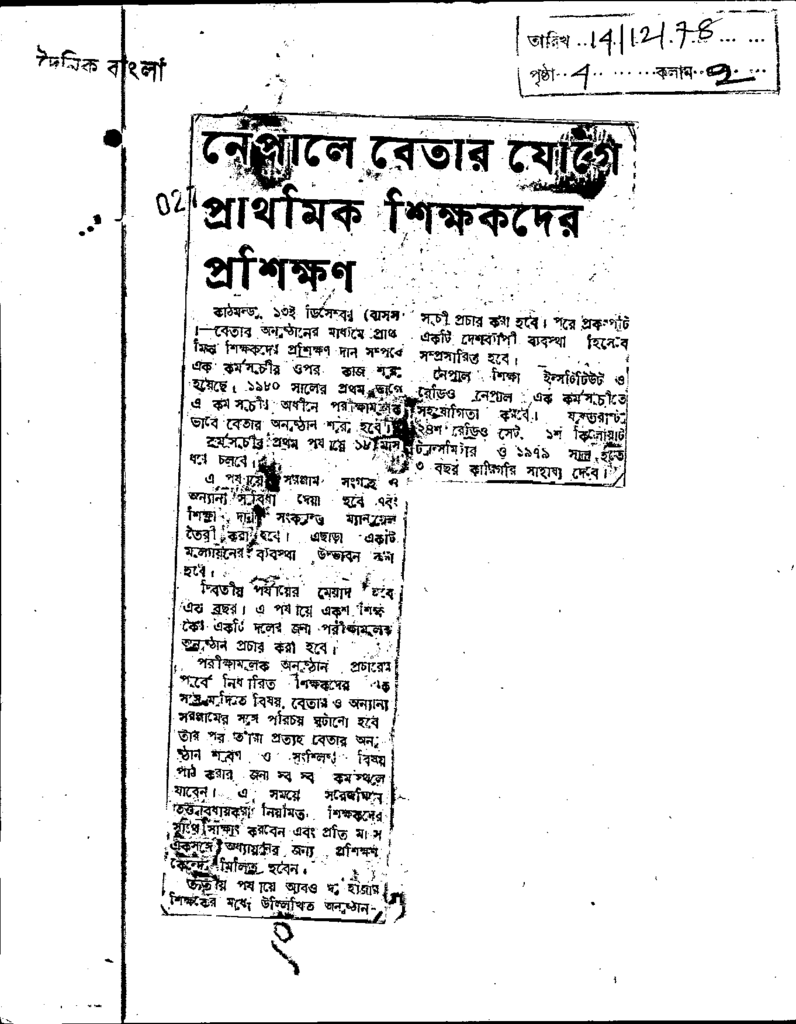 দৈনিক বাংলা
তারিখ ..14/12/78... ...
পৃষ্ঠা..4.. ... ...কলাম..2...
027
নেপালে বেতার যোগে
প্রাথমিক শিক্ষকদের
প্রশিক্ষণ
কাঠমন্ডু, ১৩ই ডিসেম্বর (বাসস
।—বেতার অনুষ্ঠানের মাধ্যমে প্রাথ
মিক শিক্ষকদের প্রশিক্ষণ দান সম্পর্কে
এক কর্মসূচীর ওপর কাজ শুরু
হয়েছে। ১৯৮০ সালের প্রথম ভাগে
এ কর্মসূচীর অধীনে পরীক্ষামূলক
ভাবে বেতার অনুষ্ঠান শুরু হবে।
কর্মসূচীর প্রথম পর্যায়ে ১৮ মাস
ধরে চলবে।
এ পর্যায়ে সরঞ্জাম সংগ্রহ ও
অন্যান্য সুবিধা দেয়া হবে এবং
শিক্ষা সংক্রান্ত ম্যানুয়েল
তৈরী করা হবে। এছাড়া একটি
মূল্যায়নের ব্যবস্থা উদ্ভাবন করা
হবে।
দ্বিতীয় পর্যায়ের মেয়াদ হবে
এক বছর। এ পর্যায়ে একশ শিক্ষ
কের একটি দলের জন্য পরীক্ষামূলক
অনুষ্ঠান প্রচার করা হবে।
পরীক্ষামূলক অনুষ্ঠান প্রচারের
পূর্বে নির্ধারিত শিক্ষকদের
বিষয়, বেতার ও অন্যান্য
সরঞ্জামের সঙ্গে পরিচয় ঘটানো হবে
তার পর তারা প্রত্যহ বেতার অনু-
ষ্ঠান শ্রবণ ও সংশ্লিষ্ট বিষয়
পাঠ করার জন্য স্ব স্ব কর্মস্থলে
যাবেন। এ সময়ে সরেজমিন
তত্ত্বাবধায়করা নিয়মিত শিক্ষকদের
সাথে সাক্ষাৎ করবেন এবং প্রতি মাসে
একসঙ্গে অধ্যায়নের জন্য প্রশিক্ষণ
কেন্দ্রে মিলিত হবেন।
তৃতীয় পর্যায়ে আরও দু হাজার
শিক্ষকের মধ্যে উল্লিখিত অনুষ্ঠান-
সূচী প্রচার করা হবে। পরে প্রকল্পটি
একটি দেশব্যাপী ব্যবস্থা হিসেবে
সম্প্রসারিত হবে।
নেপাল শিক্ষা ইন্সটিটিউট ও
রেডিও নেপাল এক কর্মসূচীতে
সহযোগিতা করবে। যুক্তরাষ্ট্র
২৪শ রেডিও সেট, ১শ কিলোয়াট
ট্রান্সমিটার ও ১৯৭৯ সাল হতে
৩ বছর কারিগরি সাহায্য দেবে।